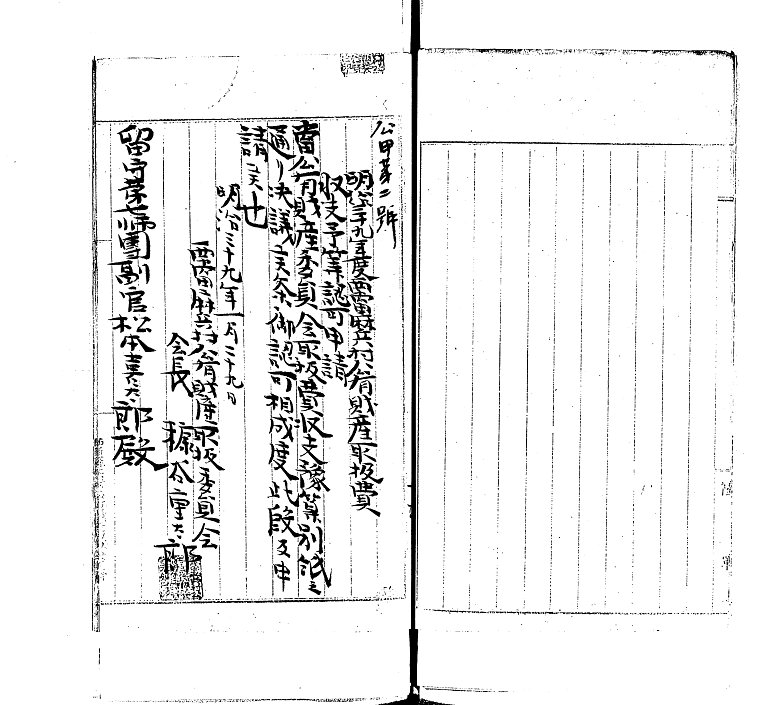 公甲第二號
明治三十九年度 村公有財産取扱費
収支予算認可申請
當公有財産委員会取扱費収支豫算別紙之
通り決議 候条御認可相成度此段及申
請候也
明治三十九年一月二十九日
村公有財産取扱委員会
会長 谷 太郎
留守第七師團副官松本 太郎殿